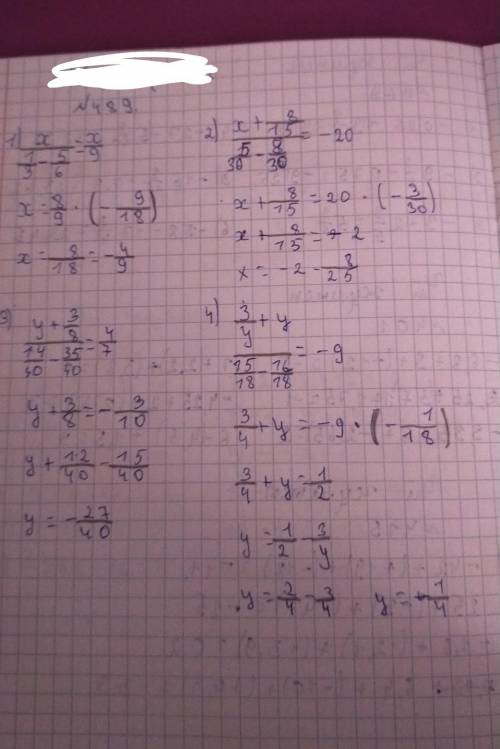 №489.
1) x / (1/3 - 5/6) = x/9
x = 8/9 · (- 9/18)
x = - 8/18 = - 4/9
2) (x + 8/15) / (5/30 - 8/30) = -20
x + 8/15 = 20 · (- 3/30)
x + 8/15 = - 2
x = - 2 - 8/25
3) (y + 3/8) / (14/30 - 35/40) = 4/7
y + 3/8 = - 3/10
y + 12/40 - 15/40
y = - 27/40
4) (3/y + y) / (15/18 - 16/18) = -9
3/4 + y = -9 · (- 1/18)
3/4 + y = 1/2
y = 1/2 - 3/y
y = 2/4 - 3/4 y = - 1/4